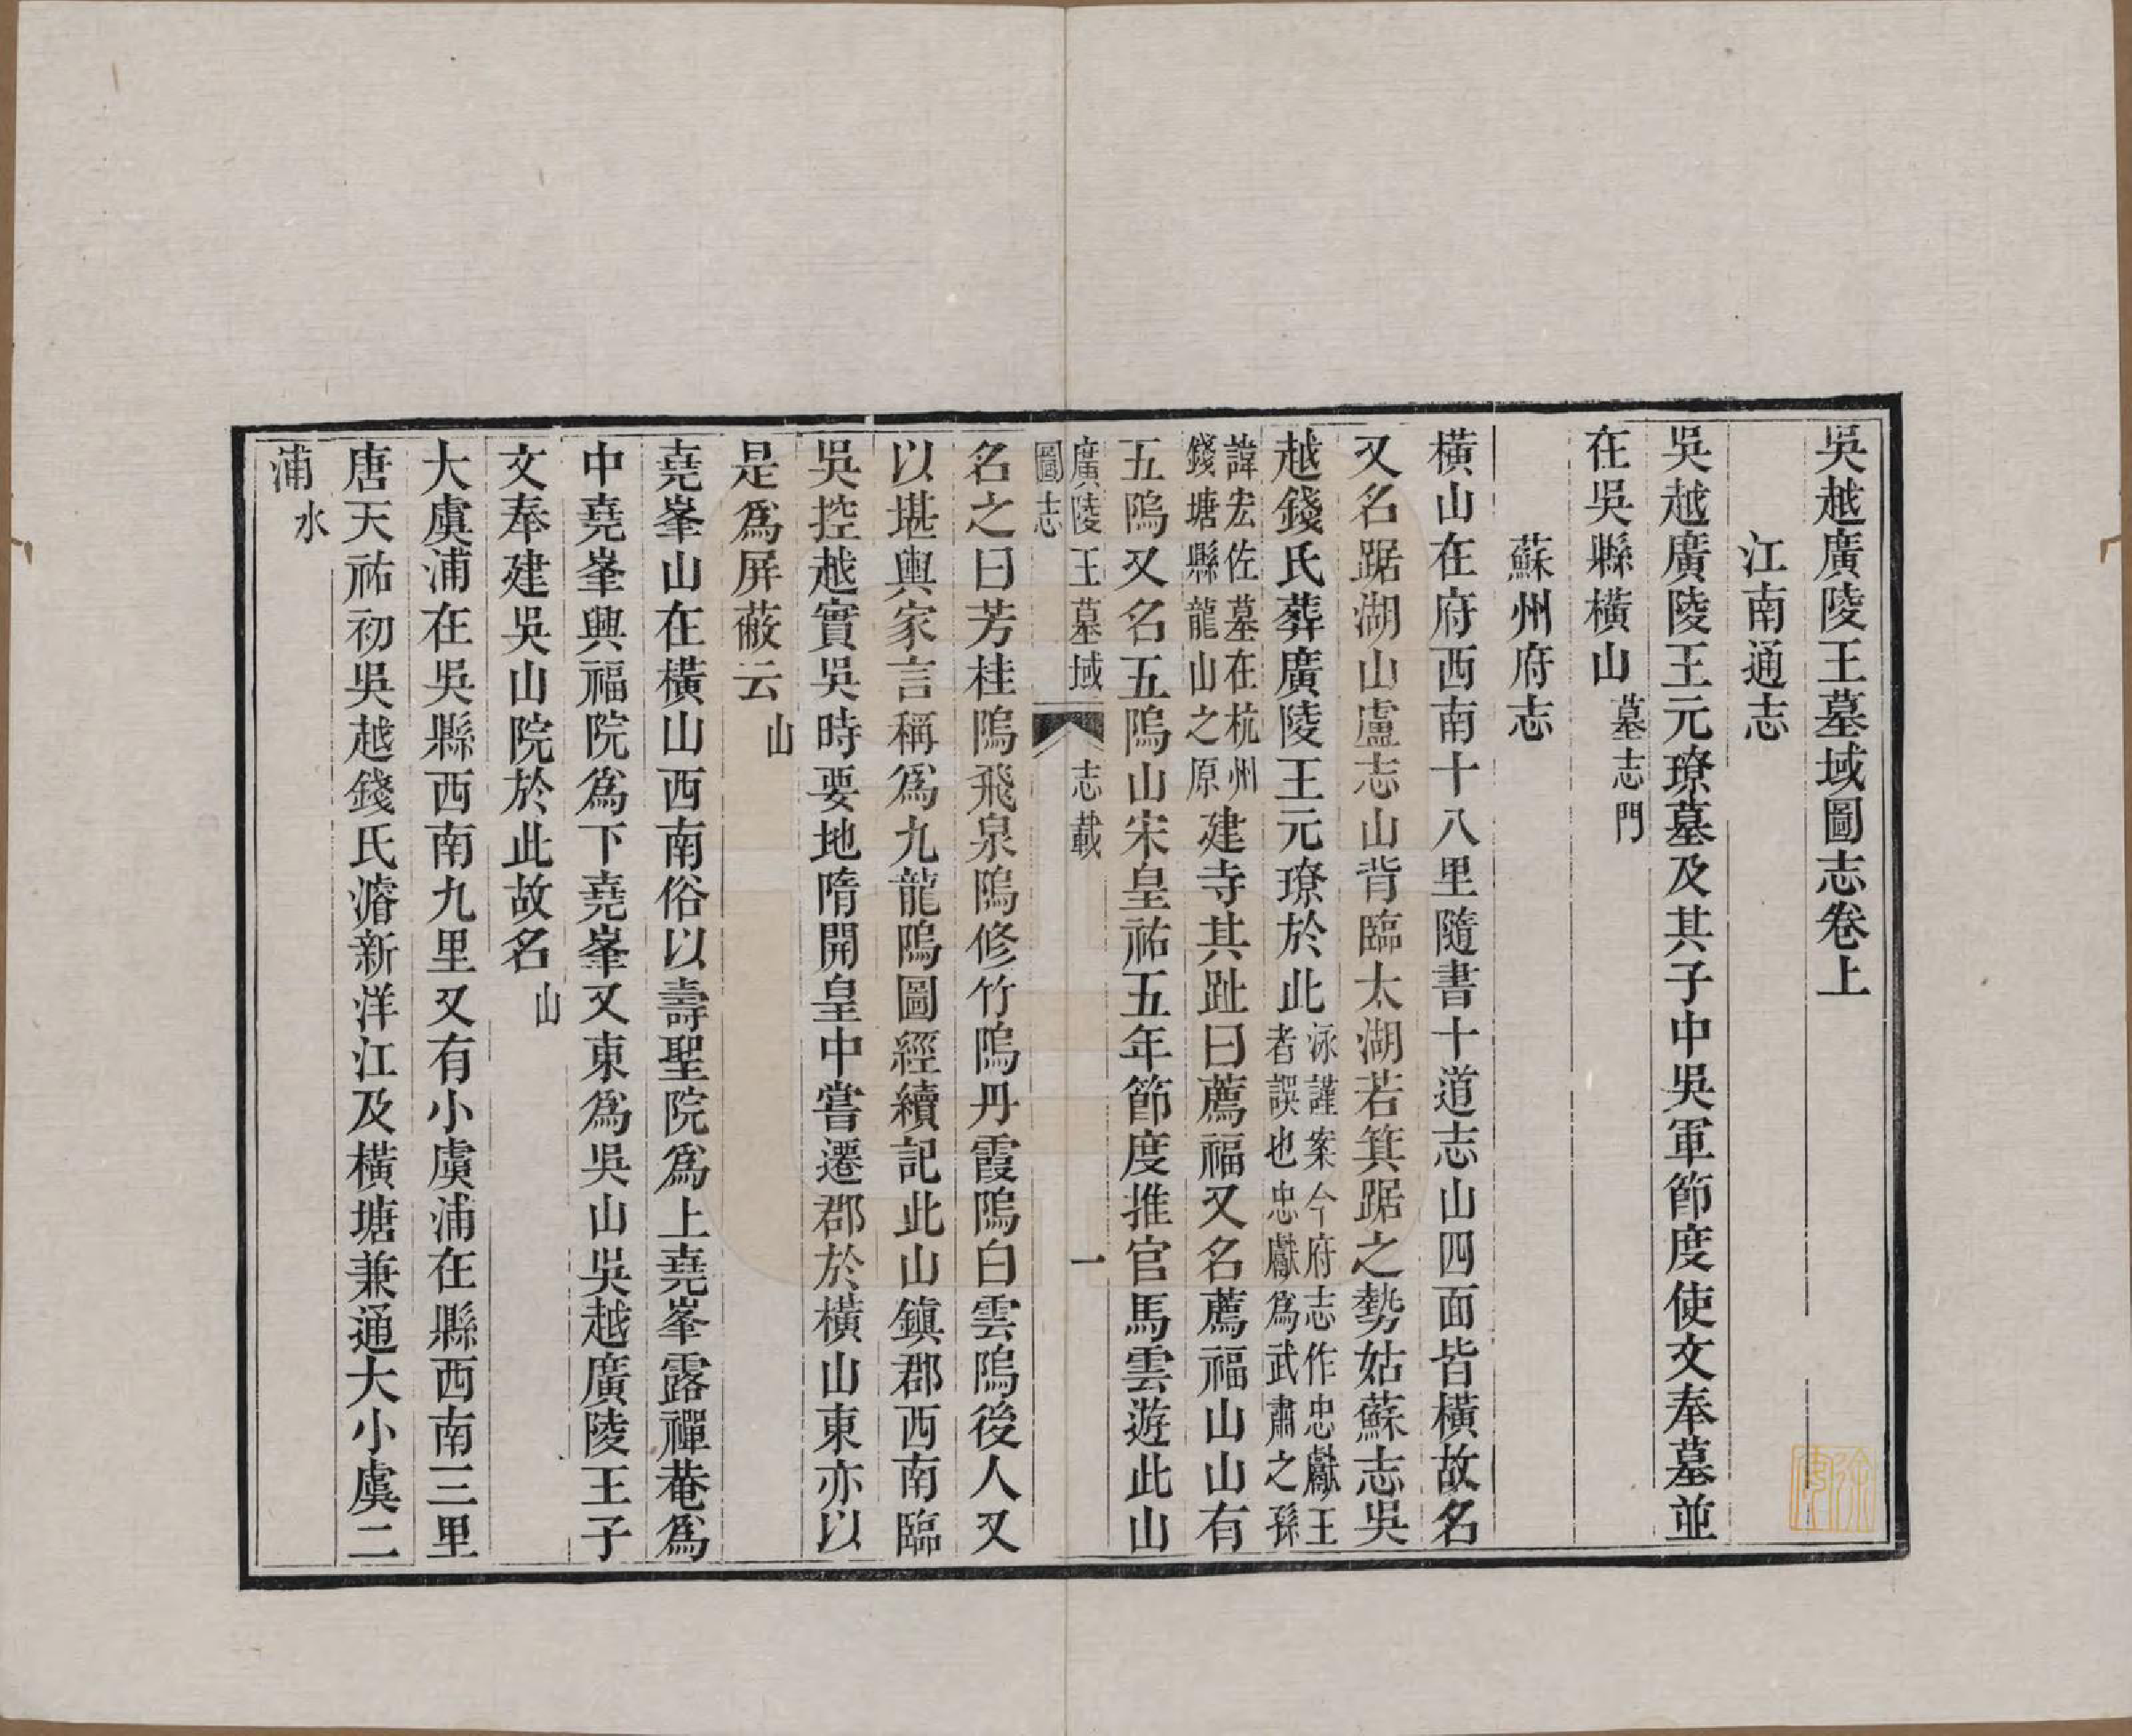 吳越廣陵王墓域圖志卷上
江南通志
吳越廣陵王元璙墓及其子中吳軍節度使文奉墓並
在吳縣橫山墓志門
蘇州府志
橫山在府西南十八里隨書十道志山四面皆橫故名
又名踞湖山盧志山背臨太湖若箕踞之勢姑蘇志吳
越錢氏葬廣陵王元璙於此泳謹案今府志作忠獻王者誤也忠獻為武肅之孫
諱宏佐墓在杭州錢塘縣龍山之原建寺其趾曰薦福又名薦福山山有
五隖又名五隖山宋皇祐五年節度推官馬雲遊此山
廣陵王墓域圖志 志載 一
名之曰芳桂隖飛泉隖修竹隖丹霞隖白雲隖後人又
以堪輿家言稱為九龍隖圖經續記此山鎮郡西南臨
吳控越實吳時要地隋開皇中嘗遷郡於橫山東亦以
是為屏蔽云山
堯峯山在橫山西南俗以壽聖院為上堯峯露禪菴為
中堯峯興福院為下堯峯又東為吳山吳越廣陵王子
文奉建吳山院於此故名山
大虞浦在吳縣西南九里又有小虞浦在縣西南三里
唐天祐初吳越錢氏濬新洋江及橫塘兼通大小虞二
浦水